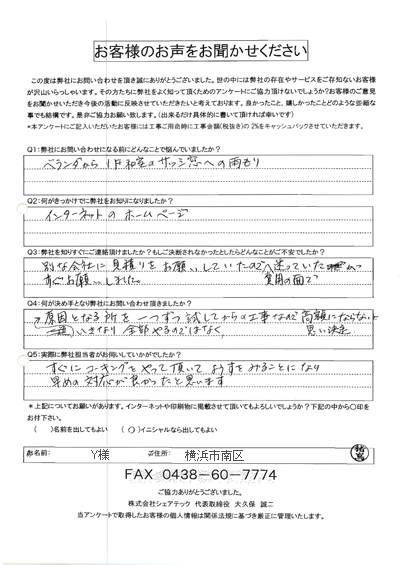 お客様のお声をお聞かせください
この度は弊社にお問い合わせを頂き誠にありがとうございました。世の中には弊社の存在やサービスをご存知ないお客様
が沢山いらっしゃいます。その方たちに弊社をよく知って頂くためのアンケートにご協力頂けないでしょうか?お客様のご意見
をお聞かせいただき今後の活動に反映させていただきたいと考えております。良かったこと、嬉しかったことどのような些細な
事でも結構です。是非ご協力お願い致します。(出来るだけ具体的に書いて頂ければ幸いです)
*本アンケートにご記入いただいたお客様には工事ご用命時に工事金額(税抜き)の2%をキャッシュバックさせていただきます。
Q1:弊社にお問い合わせになる前にどんなことで悩んでいましたか?
ベランダから1F和室のサッシ窓への雨もり
Q2:何がきっかけでに弊社をお知りになりましたか?
インターネットのホームページ
Q3:弊社を知りすぐにご連絡頂けましたか?もしご決断されなかったとしたらどんなことがご不安でしたか?
別な会社に見積りをお願いしていたので迷っていた
すぐお願いしました。 費用の面で
Q4:何が決め手となり弊社にお問い合わせ頂きましたか?
原因となる所を一つずつ試してからの工事なので高額にならないと
いきなり全部やるのではなく、 思い決定.
Q5:実際に弊社担当者がお伺いしていかがでしたか?
すぐにコーキングをやって頂いてようすをみることになり
早めの対応が良かったと思います
*上記についてお願いがあります。インターネットや印刷物に掲載させて頂いてもよろしいでしょうか?下記の中から〇印を
お付け下さい。
( )名前を出してもよい (〇)イニシャルなら出してもよい
お名前: Y様 ご住所: 横浜市南区
FAX 0438-60-7774
ご協力ありがとうございました。
株式会社シェアテック 代表取締役 大久保 誠二
当アンケートで取得したお客様の個人情報は関係法規に基づき厳正に管理いたします。